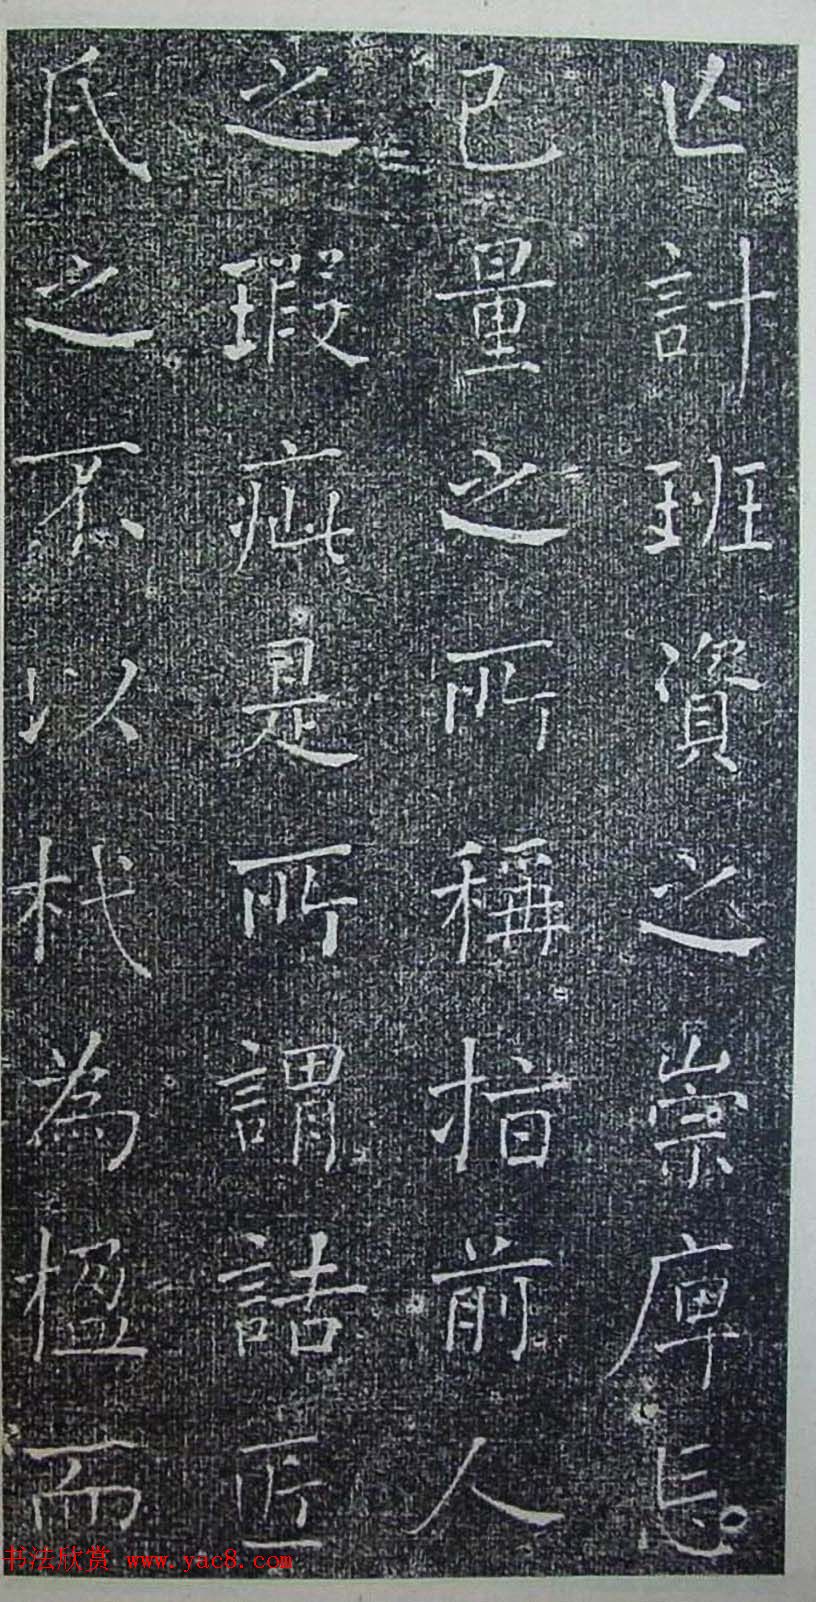 亡計班資之崇庳忘
己量之所稱指前人
之瑕疵是所謂詰匠
氏之不以杙為楹而
书法欣赏 www.yac8.com